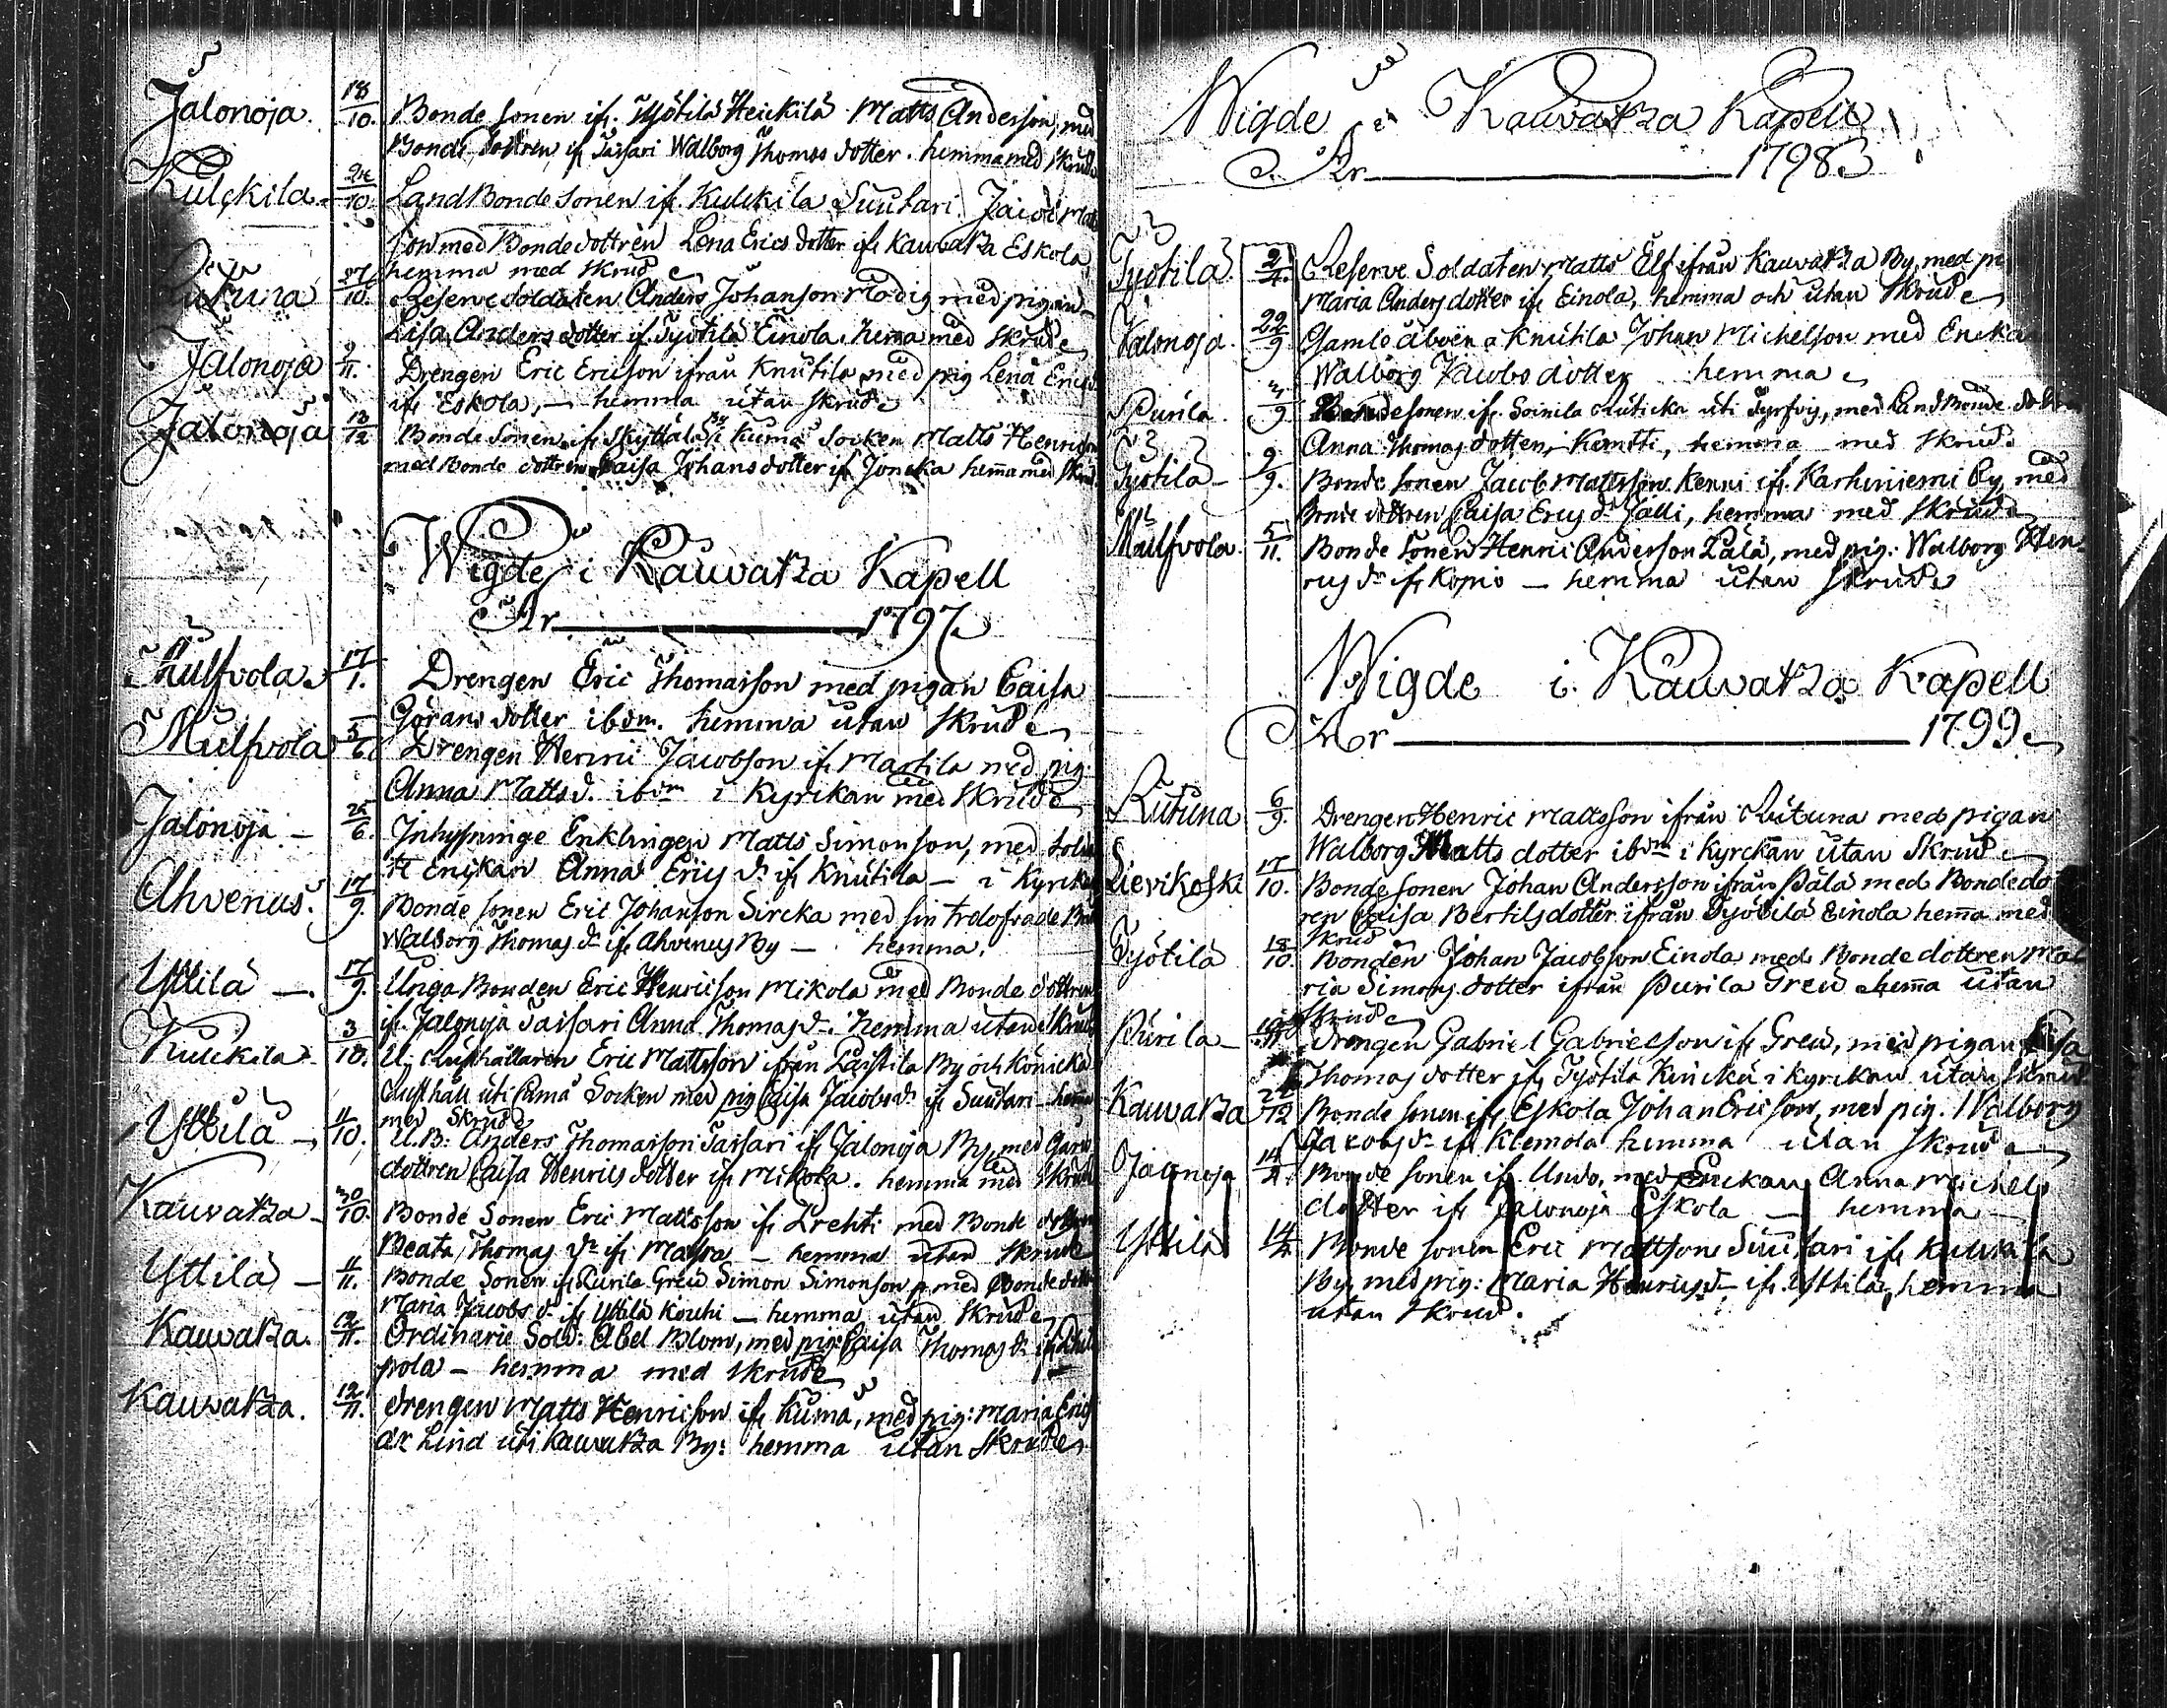 Jalonoja. 18/10. Bonde sonen ifr. Työtilä Heickilä Matts Andersson, med
Bonde dottren ifr Tassari Walborg Thomas dotter. hemma med Skrud
Kulckila 24/10 LandBonde sonen ifr. Kulckila Suutari Jacob Mats
son med Bonde dottren Lena Erics dotter ifr Kauvatza Eskola
hemma med skrud
27/10. Reserve Soldaten Anders Johanson Modig med pigan
Lisa Anders dotter if. Työtilä Einola. hema med Skrud
Jalonoja 9/11. Drengen Eric Ericson ifrån Knutila med pig Lena Erics
ifr Eskola, — hemma utan skrud
Jalonoja 13/12 Bonde Sonen ifr Skyttälä By i Kumå Socken Matts Henricson
med Bonde dottren Caisa Johans dotter if Joncka hema med Skrud
Wigde i Kauvatza Kapell
År 1797
Mulfvola 17/1. Drengen Eric Thomasson med pigan Caisa
Görans dotter ibdm. hemma utan Skrud
Mulfvola 5/6 Drengen Henric Jacobson ifr Martila med pig
Anna Matts d. ibdm i Kyrckan med Skrud
Jalonoja — 25/6. Inhysninge Enklingen Matts Simonson, med Solda
te Enckan Anna Erics dr ifr Knutila — i Kyrckan
Ahvenus. 17/9. Bonde sonen Eric Johanson Sircka med sin trolofvade
Walborg Thomas dr ifr Ahvenus By — hemma.
Yttilä —. 17/9. Unga Bonden Eric Henricson Mikola med Bonde dottren
ifr. Jalonoja Tassari Anna Thomas d. hemma utan Skrud
Kulckila 3/10. U. Rusthållaren Eric Mattsson ifrån Laistila By och Könickä
Rusthåll uti Cumå Socken med pig Caisa Jacobs dr ifr Suutari — hemma
med Skrud
Yttilä — 11/10. U.B: Anders Thomasson Tassari ifr Jalonoja By, med Bonde
dottren Caisa Henrics dotter ifr Mikola. hemma med Skrud
Kauvatza 30/10. Bonde Sonen Eric Mattsson ifr Prehti med Bonde dottren
Beata Thomas dr ifr Matra — hemma utan Skrud
Yttilä — 11/11. Bonde Sonen ifr Purila Greis Simon Simonson med Bonde dottren
Maria Jacobs d ifr Yttilä Kouhi — hemma utan Skrud
Kauvatza. 12/11. Ordinarie Sold: Abel Blom, med pig: Caisa Thomas dr ifr
pola — hemma med Skrud
Kauvatza. 12/11. drengen Matts Henricson ifr Kumå, med pig: Maria Erics
dr Lind uti Kauvatza By: hemma utan Skrud
Wigde i Kauvatza Kapell
År 1798
Työtilä 2/4. Reserve Soldaten Matts Elf ifrån Kauvatza By, med pi
Maria Anders dotter ifr Einola, hemma och utan Skrud
Jalonoja. 22/9 Gamle åboen a Knutila Johan Michelson med Enckan
Walborg Jacobs dotter hemma
Purila. 3/9 Bondesonen ifr. Soinila Ruticka uti Tyrfvis, med LandBonde dottren
Anna Thomas dotter, Kemtti, hemma med Skrud
Työtilä — 9/9. Bonde sonen Jacob Mattsson Kenni ifr. Karhiniemi By med
Bonde dottren Caisa Erics dr Jälli, hemma med Skrud
Mulfvola. 5/11. Bonde Sonen Henric Anderson Pälä, med pig: Walborg Hen-
rics dr ifr Kopio — hemma utan Skrud
Wigde i. Kauvatza Kapell
År 1799
Rutuna 6/9. Drengen Henric Mattsson ifrån Rutuna med pigan
Walborg Matts dotter ibdm i Kyrckan utan Skrud
Lievikoski 17/10. Bonde sonen Johan Andersson ifrån Pälä med Bonde do
ren Caisa Bertils dotter ifrån Työtilä Einola hema med
Skrud
Työtilä 18/10 Bonden Johan Jacobsson Einola med Bonde dottren Ma
ria Simons dotter ifrån Purila Greis hema utan
Skrud
Purila — Drengen Gabriel Gabrielson ifr Greis, med pigan Lisa
Thomas dotter ifr Työtilä Kuicku i Kyrckan utan Skrud
Kauvatza 22/12 Bonde sonen ifr Eskola Johan Ericson, med pig. Walborg
Jacobs dr ifr Klemola hemma utan Skrud
Jalonoja Bonde sonen ifr Undo, med Enckan Anna Michels
dotter ifr Jalonoja Eskola — hemma —
Yttilä Bonde sonen Eric Mattson Suutari ifr Kulckila
By, med pig: Maria Henrics d ifr. Yttilä, hemma
utan Skrud.